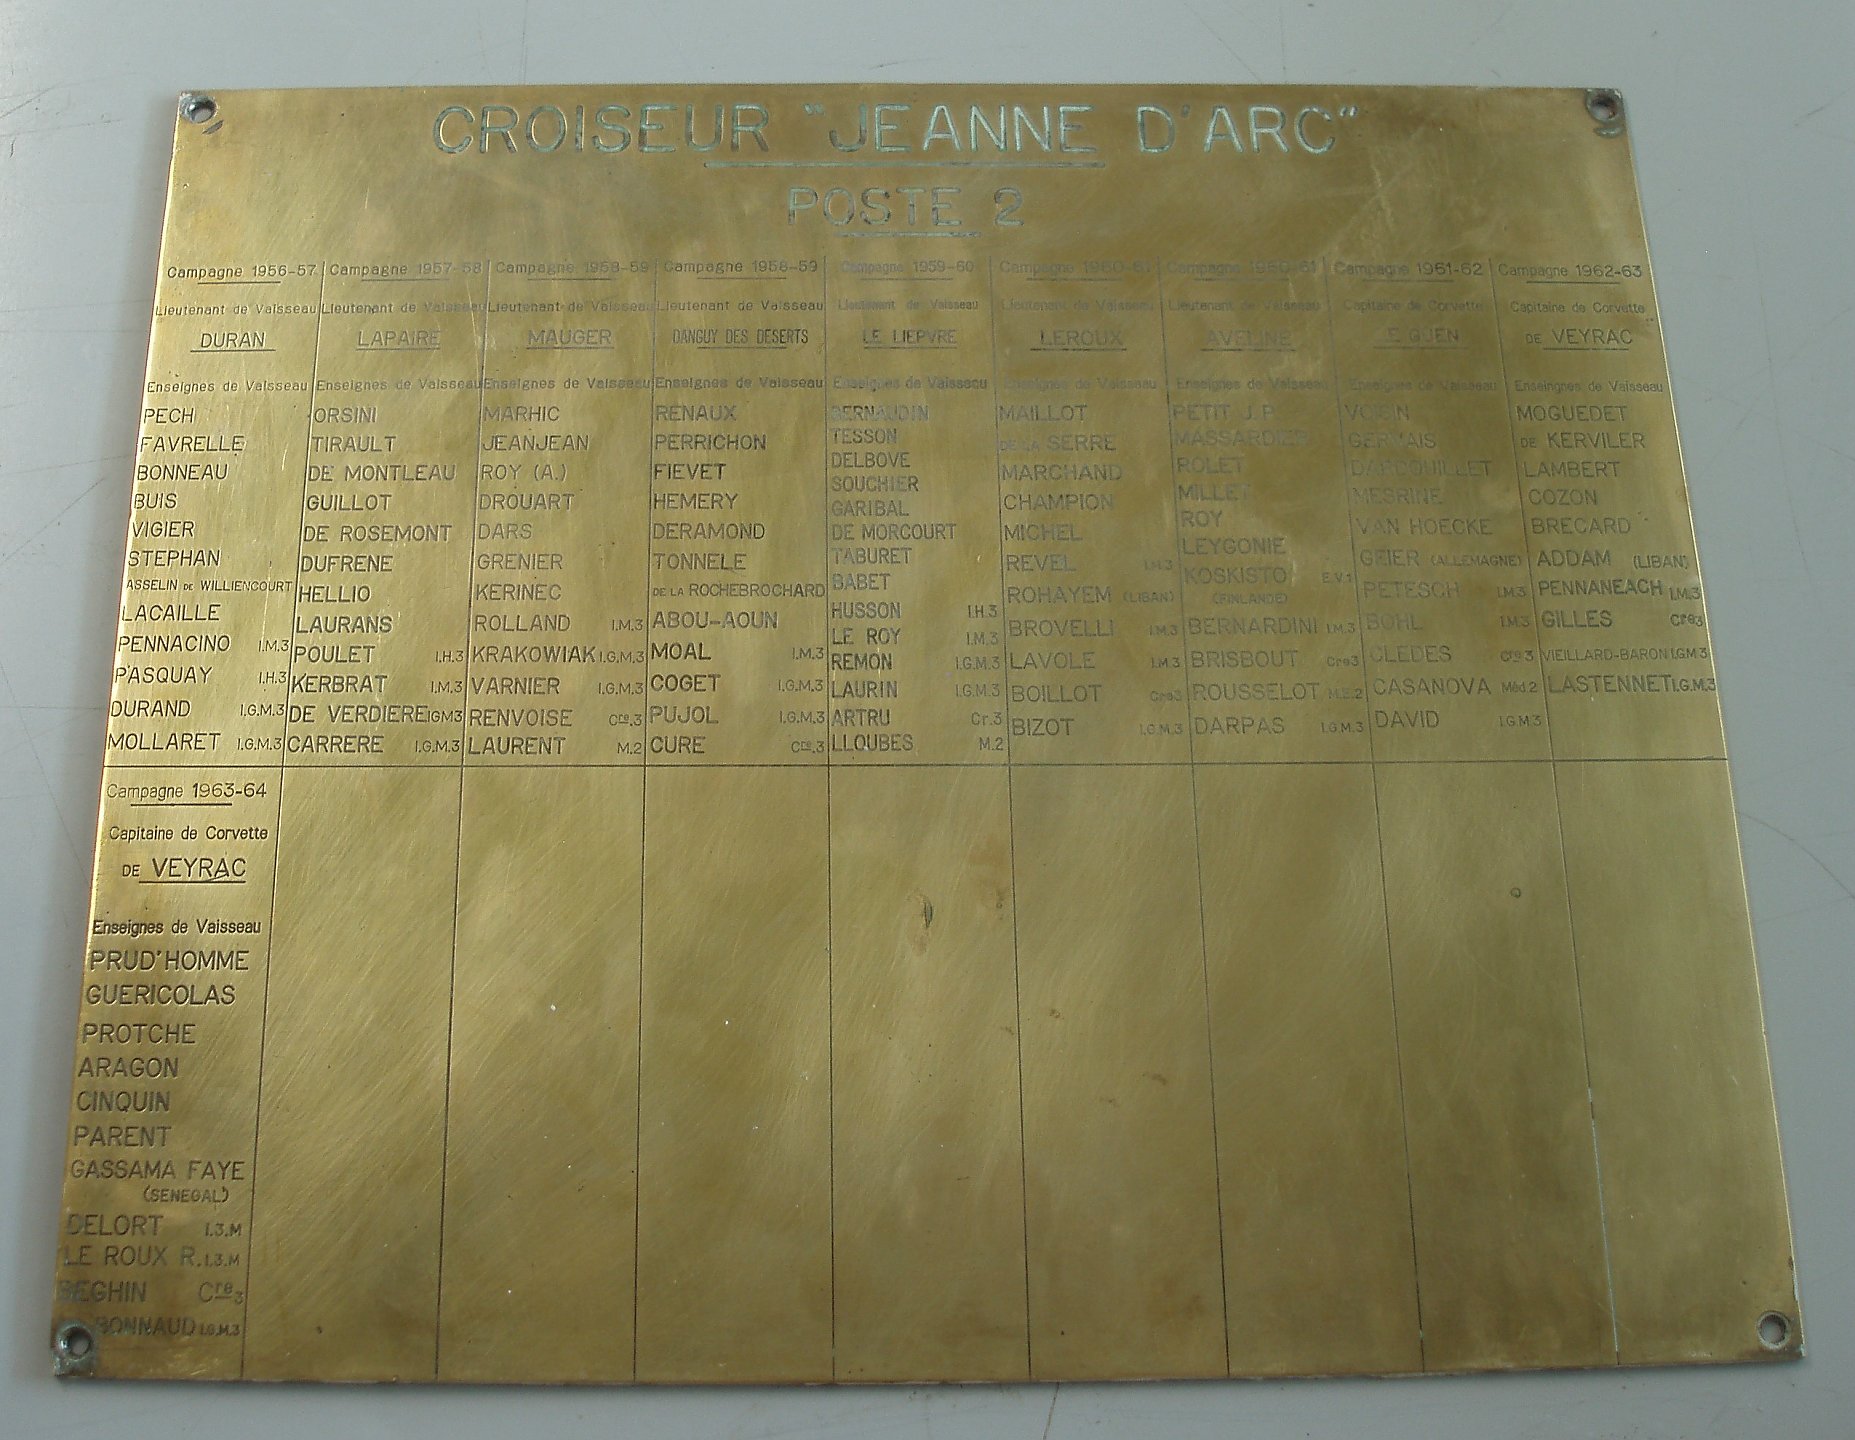 CROISEUR "JEANNE D'ARC"
POSTE 2
Campagne 1956-57
Lieutenant de Vaisseau
DURAN
Enseignes de Vaisseau
PECH
FAVRELLE
BONNEAU
BUIS
VIGIER
STEPHAN
ASSELIN DE WILLIENCOURT
LACAILLE
PENNACINO I.M.3
PASQUAY I.H.3
DURAND I.G.M.3
MOLLARET I.G.M.3
Campagne 1957-58
Lieutenant de Vaisseau
LAPAIRE
Enseignes de Vaisseau
ORSINI
TIRAULT
DE MONTLEAU
GUILLOT
DE ROSEMONT
DUFRENE
HELLIO
LAURANS
POULET I.H.3
KERBRAT I.M.3
DE VERDIERE IGM3
CARRERE I.G.M.3
Campagne 1958-59
Lieutenant de Vaisseau
MAUGER
Enseignes de Vaisseau
MARHIC
JEANJEAN
ROY (A.)
DROUART
DARS
GRENIER
KERINEC
ROLLAND I.M.3
KRAKOWIAK I.G.M.3
VARNIER I.G.M.3
RENVOISE Cre.3
LAURENT M.2
Campagne 1958-59
Lieutenant de Vaisseau
DANGUY DES DESERTS
Enseignes de Vaisseau
RENAUX
PERRICHON
FIEVET
HEMERY
DERAMOND
TONNELE
DE LA ROCHEBROCHARD
ABOU-AOUN
MOAL I.M.3
COGET I.G.M.3
PUJOL I.G.M.3
CURE Cre.3
Campagne 1959-60
Lieutenant de Vaisseau
LE LIEPVRE
Enseignes de Vaisseau
BERNAUDIN
TESSON
DELBOVE
SOUCHIER
GARIBAL
DE MORCOURT
TABURET
BABET
HUSSON I.H.3
LE ROY I.M.3
REMON I.G.M.3
LAURIN I.G.M.3
ARTRU Cr.3
LLOUBES M.2
Campagne 1960-61
Lieutenant de Vaisseau
LEROUX
Enseignes de Vaisseau
MAILLOT
DE LA SERRE
MARCHAND
CHAMPION
MICHEL
REVEL I.H.3
ROHAYEM (LIBAN)
BROVELLI I.M.3
LAVOLE I.M.3
BOILLOT Cre3
BIZOT I.G.M.3
Campagne 1960-61
Lieutenant de Vaisseau
AVELINE
Enseignes de Vaisseau
PETIT J.P.
MASSARDIER
ROLET
MILLET
ROY
LEYGONIE
KOSKISTO E.V.1
(FINLANDE)
BERNARDINI I.M.3
BRISBOUT Cre3
ROUSSELOT M.E.2
DARPAS I.G.M.3
Campagne 1961-62
Capitaine de Corvette
Enseignes de Vaisseau
VOISIN
GERVAIS
MESRINE
VAN HOECKE
GEIER (ALLEMAGNE)
PETESCH I.M.3
BOHL I.M.3
CLEDES Cre3
CASANOVA Méd2
DAVID I.G.M.3
Campagne 1962-63
Capitaine de Corvette
DE VEYRAC
Enseingnes de Vaisseau
MOGUEDET
DE KERVILER
LAMBERT
COZON
BRECARD
ADDAM (LIBAN)
PENNANEACH I.M.3
GILLES Cre3
VIEILLARD-BARON I.G.M 3
LASTENNET I.G.M.3
Campagne 1963-64
Capitaine de Corvette
DE VEYRAC
Enseignes de Vaisseau
PRUD'HOMME
GUERICOLAS
PROTCHE
ARAGON
CINQUIN
PARENT
GASSAMA FAYE
(SENEGAL)
DELORT I.3.M
LE ROUX R. I.3.M
BEGHIN Cre3
BONNAUD I.G.M.3